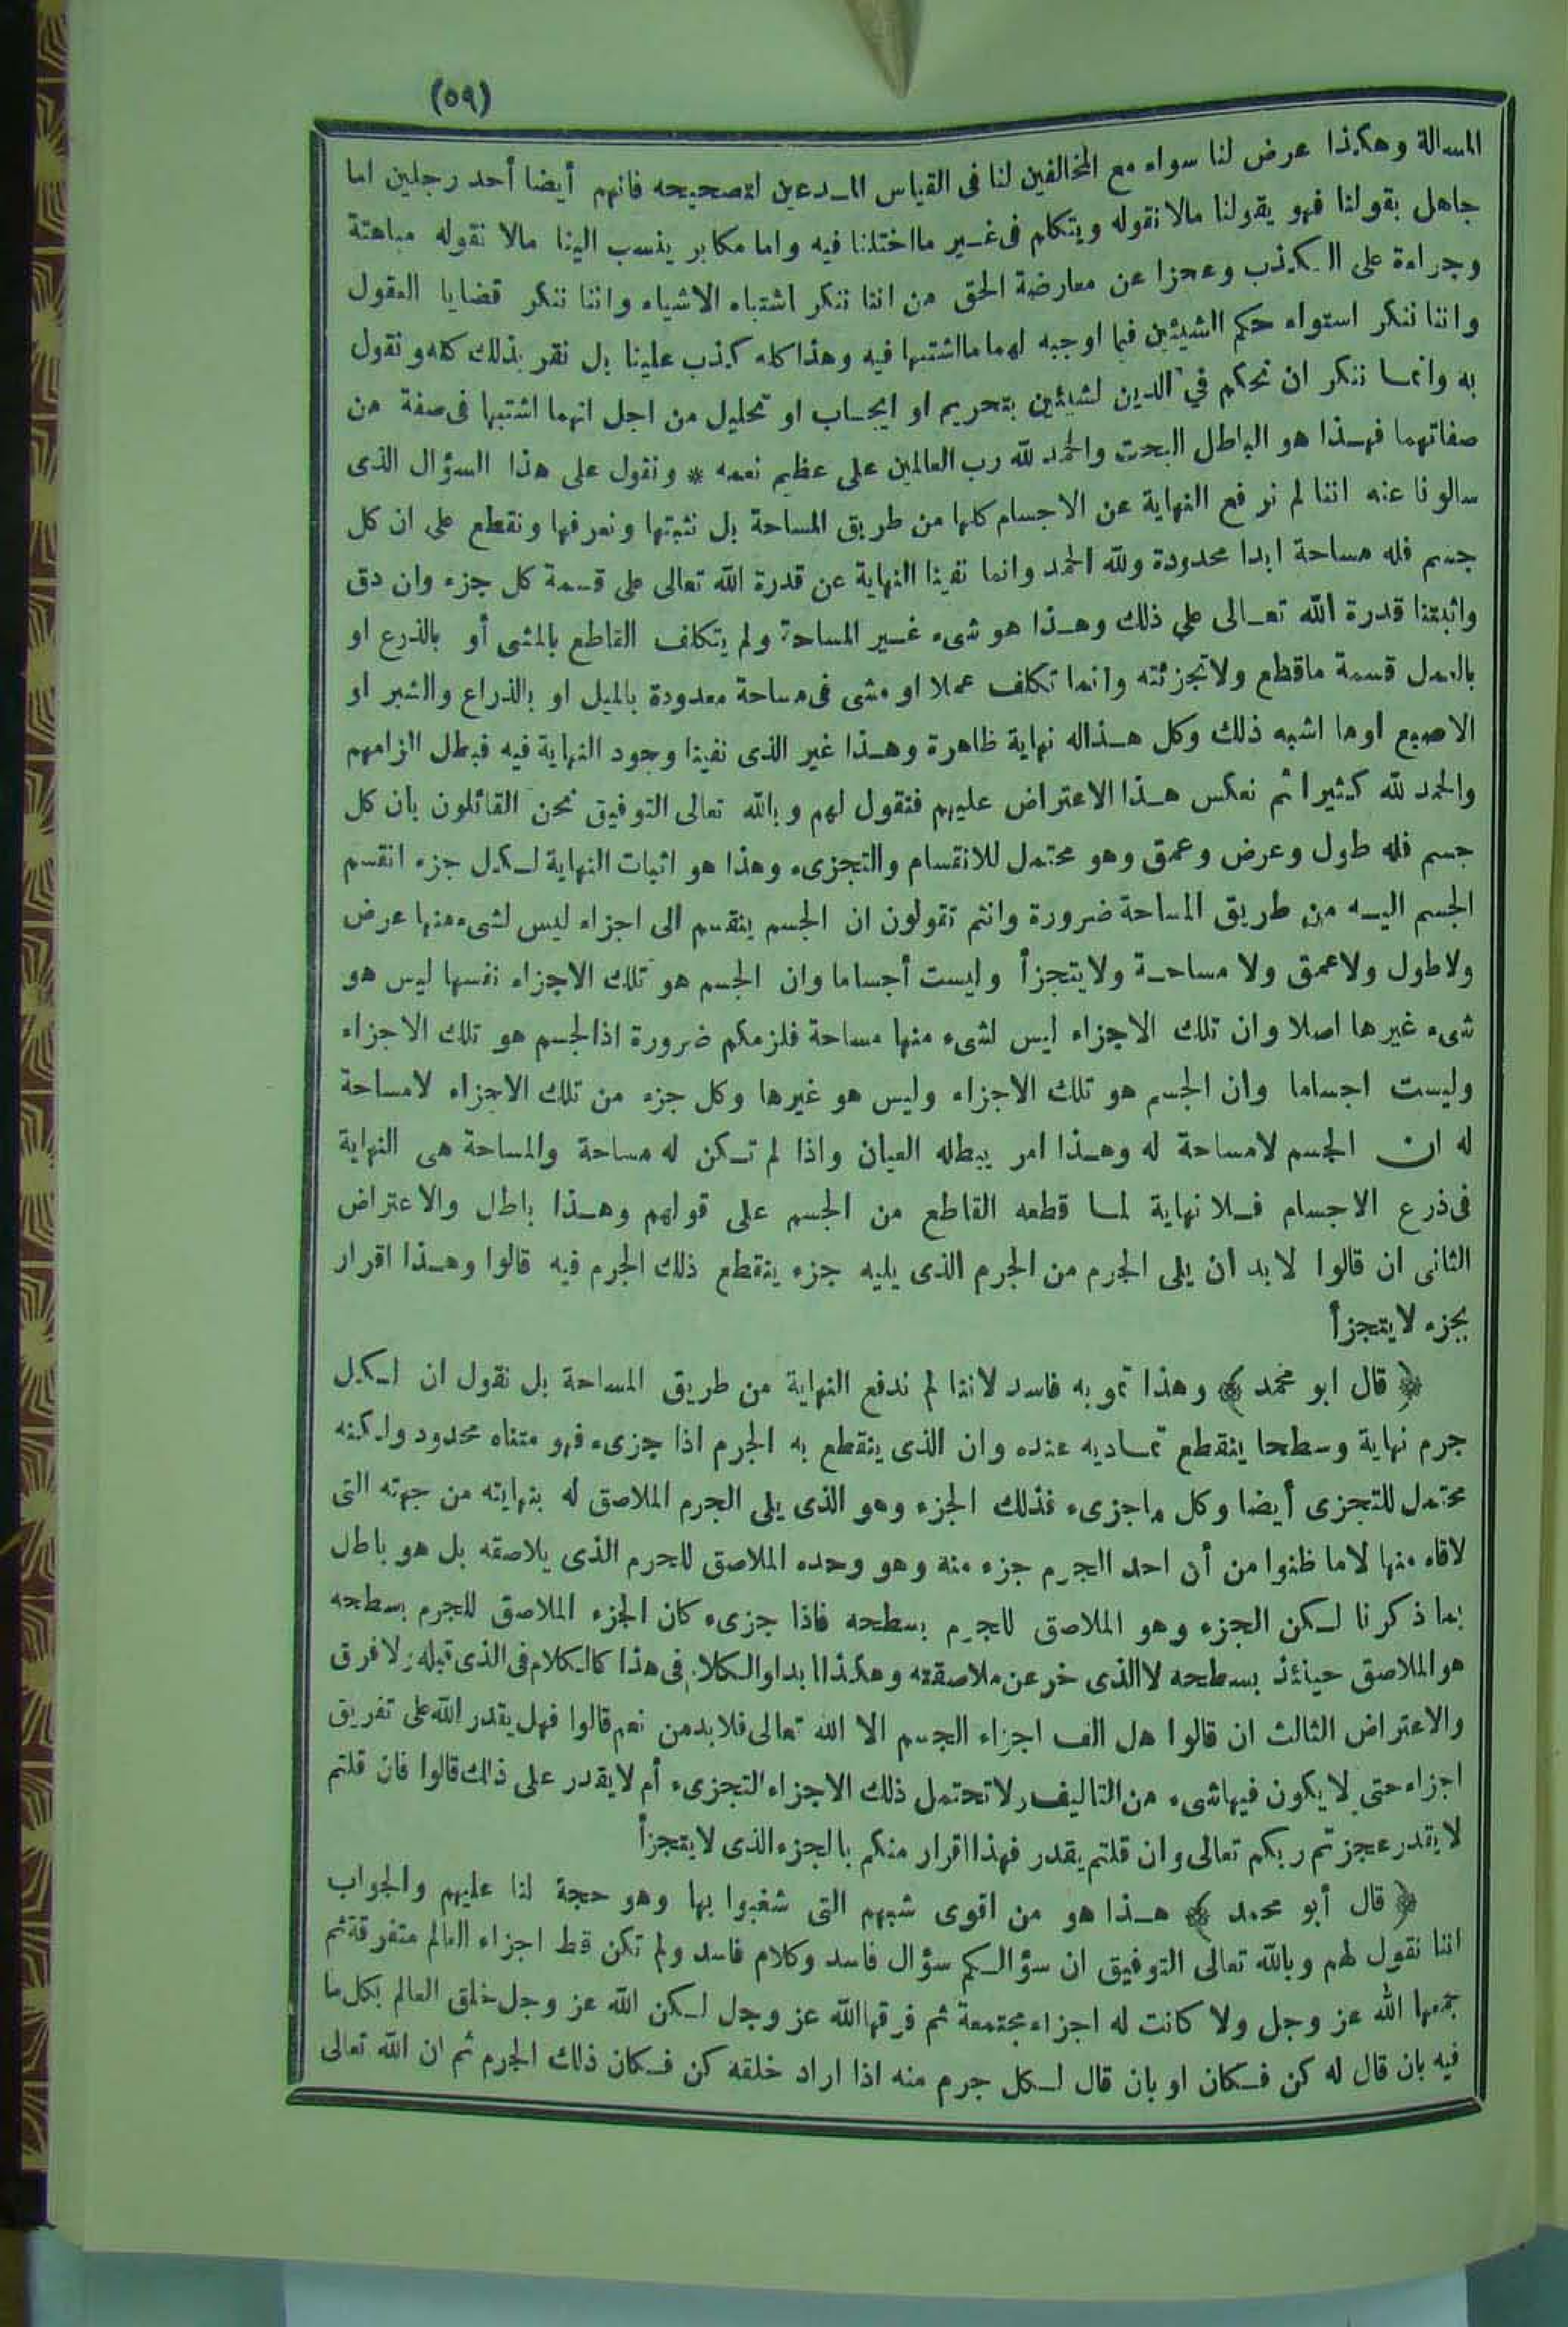 (٥٩)
المسالة وهكذا عرض لنا سواء مع المخالفين لنا فى القياس المدعين لتصحيحه فانهم أيضا أحد رجلين اما
جاهل بقولنا فهو يقولنا مالا نقوله ويتكلم فى غير ما اختلفنا فيه واما مكابر ينسب الينا مالا نقوله مباهتة
وجراءة على الكذب وعجزا عن معارضة الحق من اننا ننكر اشتباه الاشياء واننا ننكر قضايا العقول
واننا ننكر استواء حكم الشيئين فيما اوجبه لهما ما اشتبها فيه وهذا كله كذب علينا بل نقر بذلك كله ونقول
به وانما ننكر ان نحكم في الدين لشيئين بتحريم او ايجاب او تحليل من اجل انهما اشتبها فى صفة من
صفاتهما فهذا هو الباطل البحت والحمد لله رب العالمين على عظيم نعمه * ونقول على هذا السؤال الذى
سالونا عنه اننا لم نرفع النهاية عن الاجسام كلها من طريق المساحة بل نثبتها ونعرفها ونقطع على ان كل
جسم فله مساحة ابدا محدودة ولله الحمد وانما نفينا النهاية عن قدرة الله تعالى على قسمة كل جزء وان دق
واثبتنا قدرة الله تعالى على ذلك وهذا هو شىء غير المساحة ولم يتكلف القاطع بالمشى أو بالذرع او
بالعمل قسمة ماقطع ولا تجزئته وانما تكلف عملا او مشى فى مساحة معدودة بالميل او بالذراع والشبر او
الاصبع اوما اشبه ذلك وكل هذا له نهاية ظاهرة وهذا غير الذى نفينا وجود النهاية فيه فبطل الزامهم
والحمد لله كثيرا ثم نعكس هذا الاعتراض عليهم فنقول لهم وبالله تعالى التوفيق نحن القائلون بان كل
جسم فله طول وعرض وعمق وهو محتمل للانقسام والتجزىء وهذا هو اثبات النهاية لكل جزء انقسم
الجسم اليه من طريق المساحة ضرورة وانتم تقولون ان الجسم ينقسم الى اجزاء ليس لشىء منها عرض
ولا طول ولا عمق ولا مساحة ولا يتجزأ وليست أجساما وان الجسم هو تلك الاجزاء نفسها ليس هو
شىء غيرها اصلا وان تلك الاجزاء ليس لشىء منها مساحة فلزمكم ضرورة اذ الجسم هو تلك الاجزاء
وليست اجساما وان الجسم هو تلك الاجزاء وليس هو غيرها وكل جزء من تلك الاجزاء لامساحة
له ان الجسم لامساحة له وهذا امر يبطله العيان واذا لم تكن له مساحة والمساحة هى النهاية
فى ذرع الاجسام فلا نهاية لما قطعه القاطع من الجسم على قولهم وهذا باطل والاعتراض
الثانى ان قالوا لا بد ان يلى الجرم من الجرم الذى يليه جزء ينقطع ذلك الجرم فيه قالوا وهذا اقرار
بجزء لا يتجزأ
﴿ قال ابو محمد ﴾ وهذا تمويه فاسد لاننا لم ندفع النهاية من طريق المساحة بل نقول ان لكل
جرم نهاية وسطحا ينقطع تماديه عنده وان الذى ينقطع به الجرم اذا جزىء فهو متناه محدود ولكنه
محتمل للتجزى أيضا وكل ماجزىء فذلك الجزء وهو الذى يلى الجرم الملاصق له بنهايته من جهته التى
لاقاه منها لا ما ظنوا من أن احد الجرم جزء منه وهو وحده الملاصق للجرم الذى يلاصقه بل هو باطل
بما ذكرنا لكن الجزء وهو الملاصق للجرم بسطحه فاذا جزىء كان الجزء الملاصق للجرم بسطحه
هو الملاصق حينئذ بسطحه لا الذى خر عن ملاصقته وهكذا ابدا والكلام فى هذا كالكلام فى الذى قبله ولا فرق
والاعتراض الثالث ان قالوا هل الف اجزاء الجسم الا الله تعالى فلابد من نعم قالوا فهل يقدر الله على تفريق
اجزاءه حتى لا يكون فيها شىء من التاليف ولا تحتمل ذلك الاجزاء التجزىء أم لا يقدر على ذلك قالوا فان قلتم
لا يقدر عجزتم ربكم تعالى وان قلتم يقدر فهذا اقرار منكم بالجزء الذى لا يتجزأ
﴿ قال أبو محمد ﴾ هذا هو من اقوى شبههم التى شغبوا بها وهو حجة لنا عليهم والجواب
اننا نقول لهم وبالله تعالى التوفيق ان سؤالكم سؤال فاسد وكلام فاسد ولم تكن قط اجزاء العالم متفرقة ثم
جمعها الله عز وجل ولا كانت له اجزاء مجتمعة ثم فرقها الله عز وجل لكن الله عز وجل خلق العالم بكل ما
فيه بان قال له كن فكان او بان قال لكل جرم منه اذا اراد خلقه كن فكان ذلك الجرم ثم ان الله تعالى